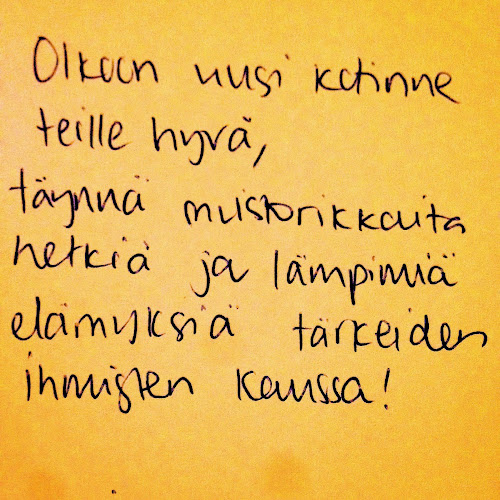 Olkoon uusi kotinne
teille hyvä,
täynnä muistorikkaita
hetkiä ja lämpimiä
elämyksiä tärkeiden
ihmisten kanssa!